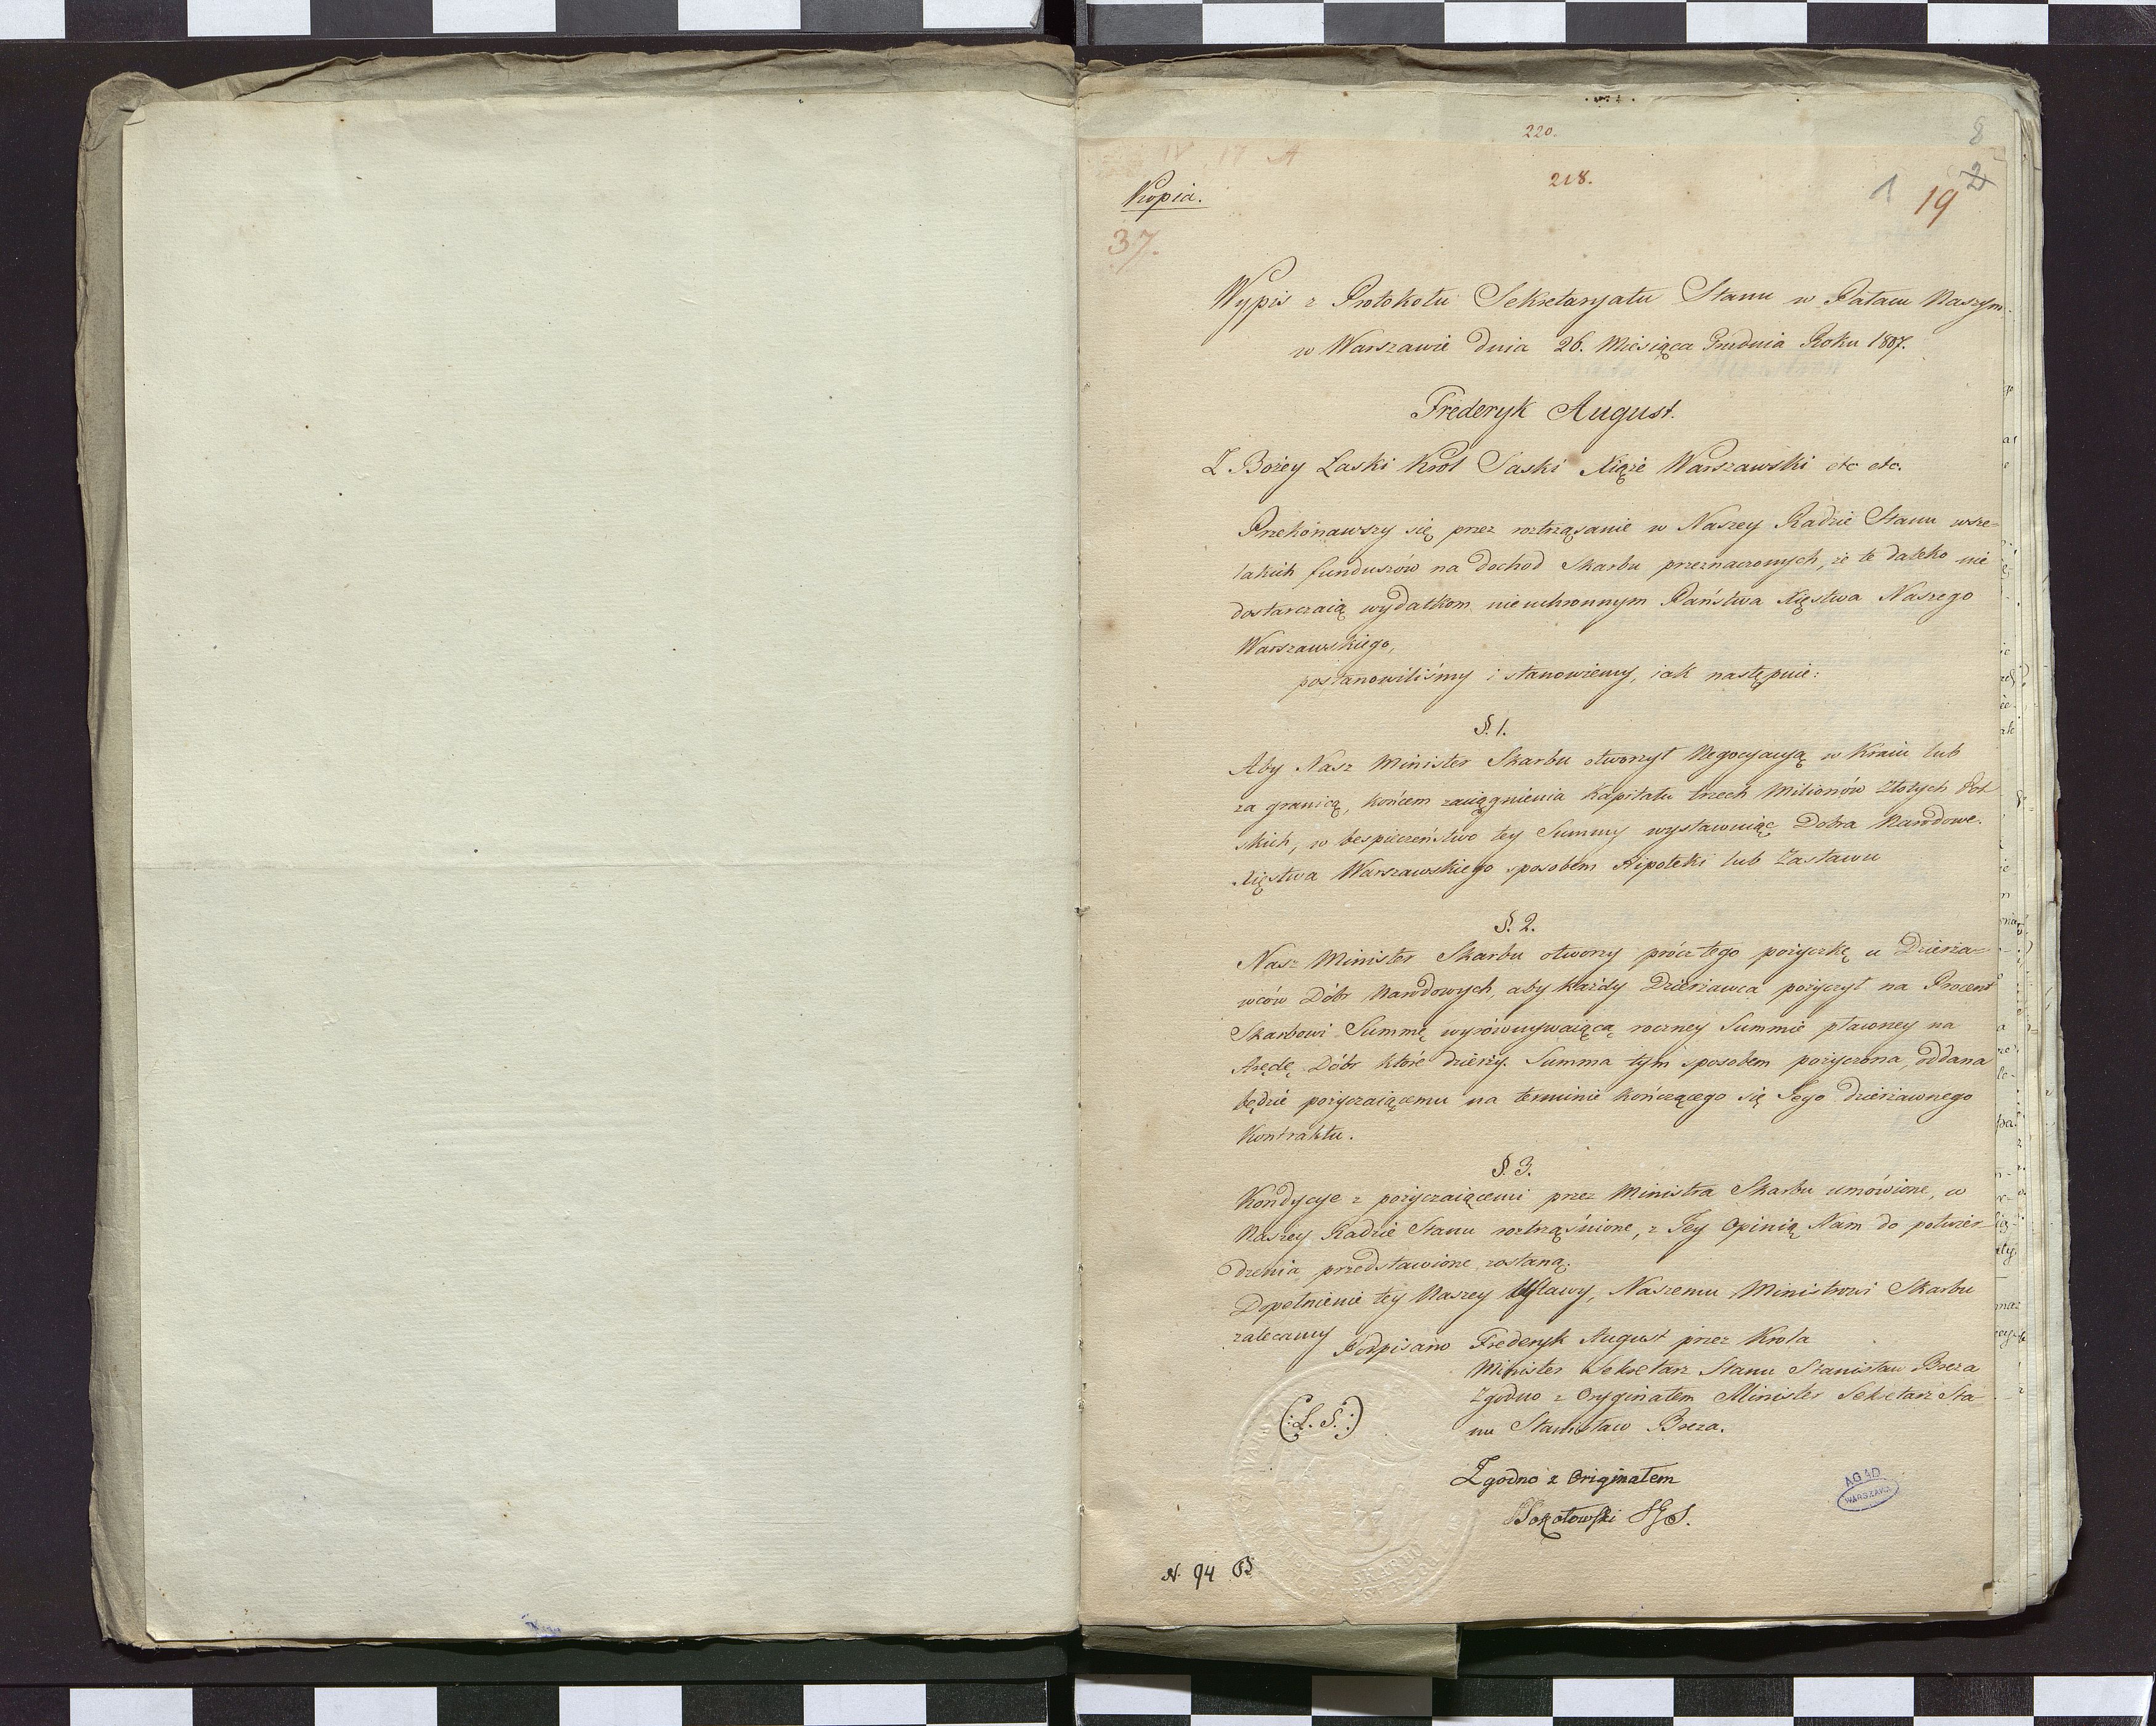 220.
8
218.
Kopia.
1
19
2
37.
Wypis z Protokołu Sekretaryatu Stanu w Pałacu Naszym
w Warszawie dnia 26. Miesiąca Grudnia Roku 1807.
Frederyk August.
Z Bożey Łaski Krol Saski Xiąże Warszawski etc etc.
Przekonawszy się przez roztrząsanie w Naszey Radzie Stanu wsze-
lakich funduszów na dochod Skarbu przeznaczonych, że te daleko nie
dostarczaią wydatkom nieuchronnym Państwa Xięstwa Naszego
Warszawskiego,
postanowiliśmy i stanowiemy, iak następuie:
§. 1.
Aby Nasz Minister Skarbu otworzył Negocyacyą w Kraiu lub
za granicą, końcem zaciągnienia Kapitału trzech Milionów Złotych Pol
skich, w bespieczeństwo tey Summy wystawuiąc Dobra Narodowe.
Xięstwa Warszawskiego sposobem Hipoteki lub Zastawu
§. 2.
Nasz Minister Skarbu otworzy prócz tego pożyczkę u Dzierża-
wców Dóbr Narodowych, aby każdy Dzierżawca pożyczył na Procent
Skarbowi Summę wyrównywaiącą roczney Summie płaconey na
Arędę Dóbr które dzierży. Summa tym sposobem pożyczona, oddana
będzie pożyczaiącemu na terminie kończącego się Jego dzierżawnego
Kontraktu.
§. 3.
Kondycye z pożyczaiącemi przez Ministra Skarbu umówione, w
Naszey Radzie Stanu roztrząśnione, z Jey Opinią Nam do potwier
dzenia przedstawione zostaną.
Dopełnienie tey Naszey Ustawy, Naszemu Ministrowi Skarbu
zalecamy
Podpisano Frederyk August przez Krola
Minister Sekretarz Stanu Stanisław Breza
Zgodno z Oryginałem Minister Sekretarz Sta-
nu Stanisław Breza.
(:L. S.:)
Zgodno z Originałem
Sokołowski
AGAD
WARSZAWA
N. 94 B